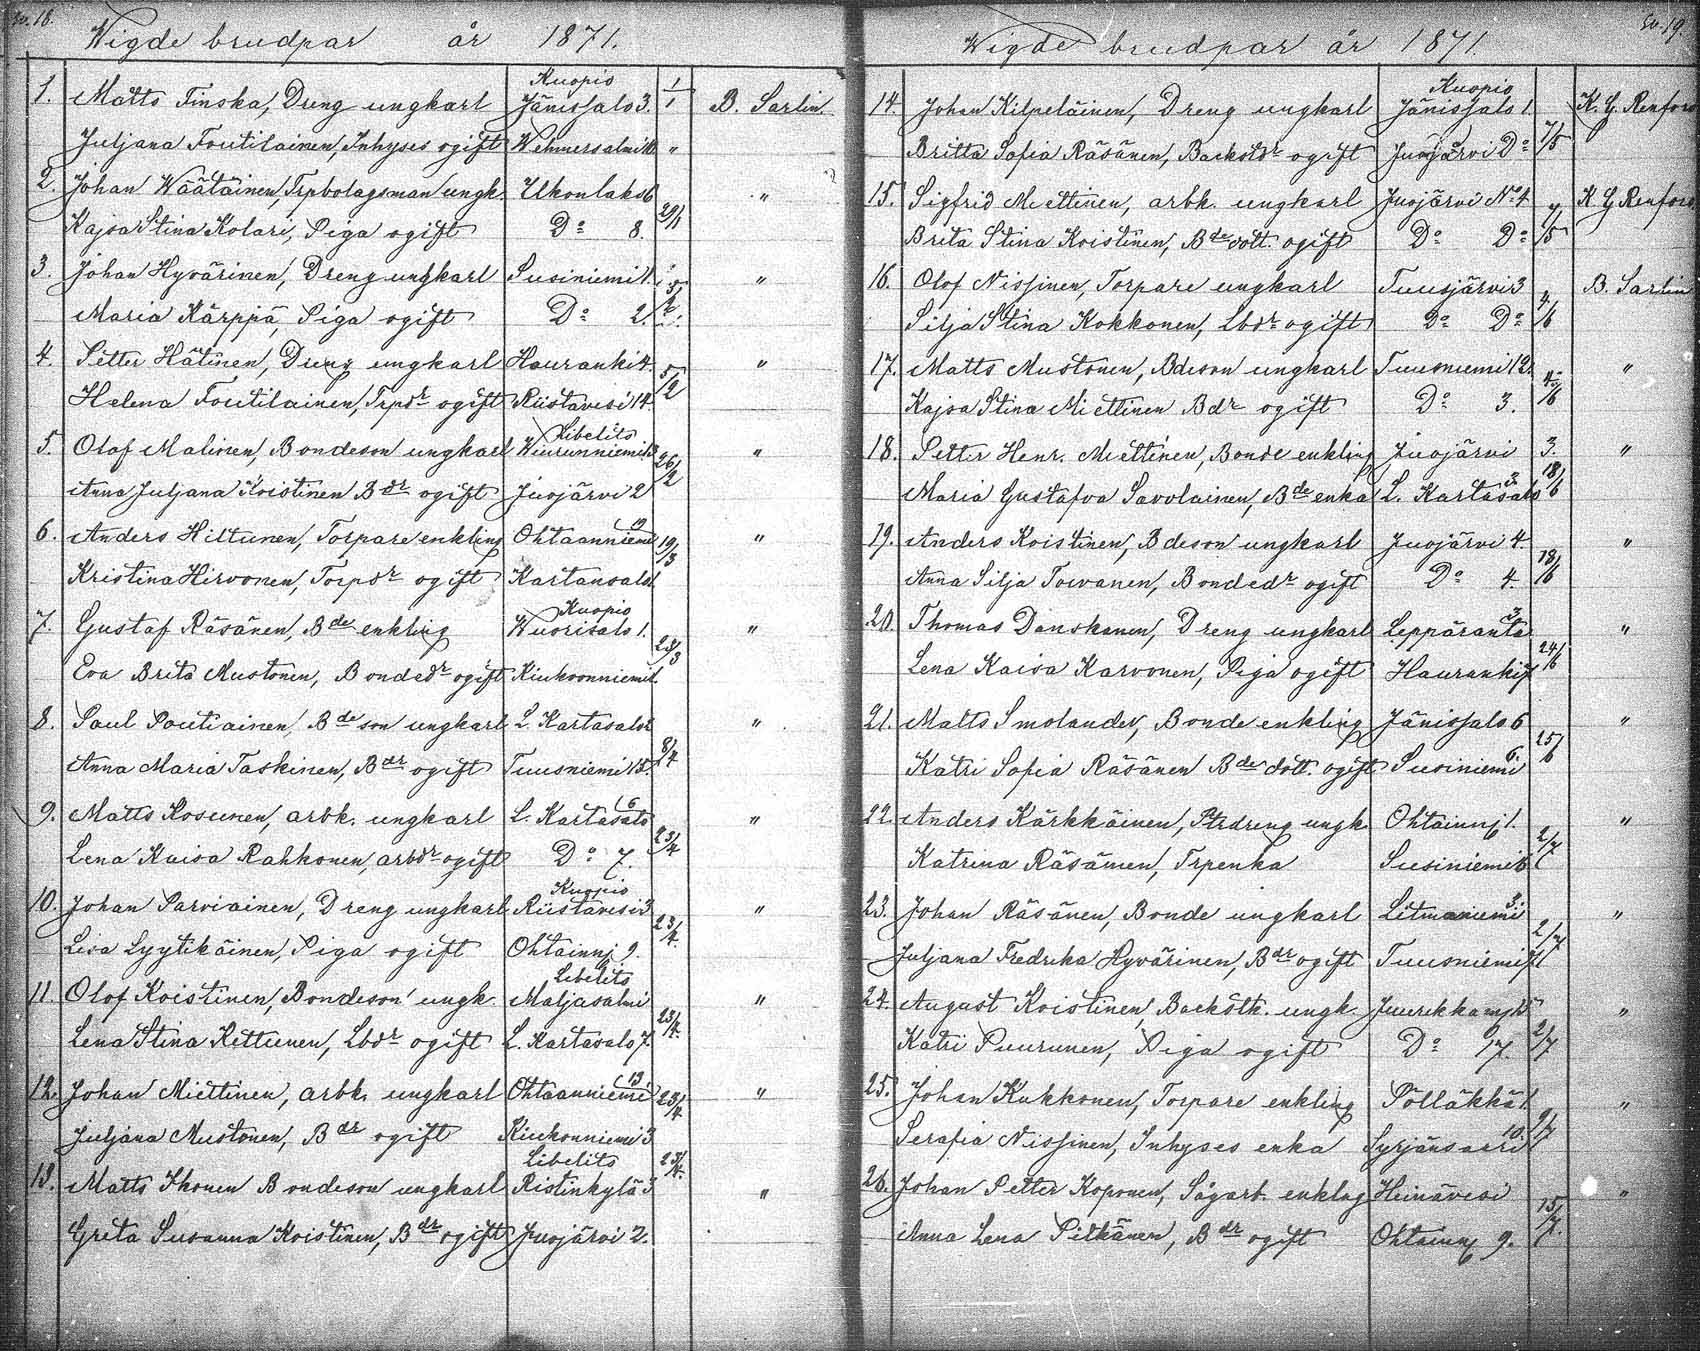 Wigde brudpar år 1871.
1. Matts Tinska, Dreng ungkarl Kuopio Jänissalo 3. 1/1 B. Sarlin.
Juljana Toutilainen, Inhyses ogift Wehmersalmi "
2. Johan Wäätäinen, Trpbolagsman ungk. Ukonlaks 6 29/1 "
Kajsa Stina Kolari, Piga ogift Do 8.
3. Johan Hyvärinen, Dreng ungkarl Susiniemi 1. 5/2 "
Maria Kärppä, Piga ogift Do 2.
4. Petter Hätinen, Dreng ungkarl Hauranki 4. 5/2 "
Helena Toutilainen, Trpdr ogift Riistavesi 14.
5. Olof Malinen, Bondeson ungkarl Libelits Wiurunniemi 26/2 "
Anna Juljana Koistinen Bdr ogift Juojärvi 2
6. Anders Hiltunen, Torpare enkling Ohtaanniemi 19/3 "
Kristina Hirvonen, Torpdr ogift Kartansalo
7. Gustaf Räsänen, Bde enkling Kuopio Wuorisalo 1. "
Eva Brita Mustonen, Bondedr ogift Kiukoonniemi
8. Paul Poutiainen, Bdeson ungkarl L. Kartasalo 8/4 "
Anna Maria Taskinen, Bdr ogift Tuusniemi 13.
9. Matts Kosunen, arbk. ungkarl L. Kartasalo 6 23/4 "
Lena Kaisa Rahkonen, arbdr ogift Do 7.
10. Johan Parviainen, Dreng ungkarl Kuopio Riistavesi 3 23/4. "
Lisa Lyytikäinen, Piga ogift Ohtainnj 9.
11. Olof Koistinen, Bondeson ungk. Libelits Maljasalmi 23/4. "
Lena Stina Kettunen, Lbdr ogift L. Kartasalo 7.
12. Johan Miettinen, arbk. ungkarl Ohtaanniemi 13. 23/4 "
Juljana Mustonen, Bdr ogift Kiukonniemi 3
13. Matts Ihonen Bondeson ungkarl Libelits Ristinkylä 3 23/4. "
Greta Susanna Koistinen, Bdr ogift Juojärvi 2.
Wigde brudpar år 1871.
14. Johan Kilpeläinen, Dreng ungkarl Kuopio Jänissalo 1. 7/5 K. G. Renfors
Britta Sofia Räsänen, Backstdr ogift Juojärvi Do
15. Sigfrid Miettinen, arbk. ungkarl Juojärvi No 4 7/5 K G Renfors
Brita Stina Koistinen, Bde dott. ogift Do Do
16. Olof Nissinen, Torpare ungkarl Tuusjärvi 3 4/6 B. Sarlin
Silja Stina Kokkonen, Lbdr ogift Do Do
17. Matts Mustonen, Bdeson ungkarl Tuusniemi 12. 4/6 "
Kajsa Stina Miettinen Bdr ogift Do 3.
18. Petter Henr. Miettinen, Bonde enkling Juojärvi 3. 18/6 "
Maria Gustafva Savolainen, Bde enka L. Kartasalo 3
19. Anders Koistinen, Bdeson ungkarl Juojärvi 4. 18/6 "
Anna Silja Toivanen, Bondedr ogift Do 4.
20. Thomas Danskanen, Dreng ungkarl Leppäranta 3 24/6 "
Lena Kaisa Karvonen, Piga ogift Hauranki 7
21. Matts Smolander, Bonde enkling Jänissalo 6 25/6 "
Katri Sofia Räsänen Bde dott. ogift Susiniemi 6.
22. Anders Kärkkäinen, Ptrdreng ungk. Ohtainnj 1. 2/7 "
Katrina Räsänen, Trpenka Susiniemi 6
23. Johan Räsänen, Bonde ungkarl Litmaniemi 3. 2/7 "
Juljana Fredrika Hyvärinen, Bdr ogift Tuusniemi 7
24. August Koistinen, Backstk. ungk. Juurikkamäki 2/7 "
Katri Puurunen, Piga ogift Do 17.
25. Johan Kukkonen, Torpare enkling Pölläkkä 1. 9/7 "
Serafia Nissinen, Inhyses enka Syrjänsaari 10.
26. Johan Petter Koponen, Sågarb. enklng Heinävesi 15/7. "
Anna Lena Pitkänen, Bdr ogift Ohtainnj 9.